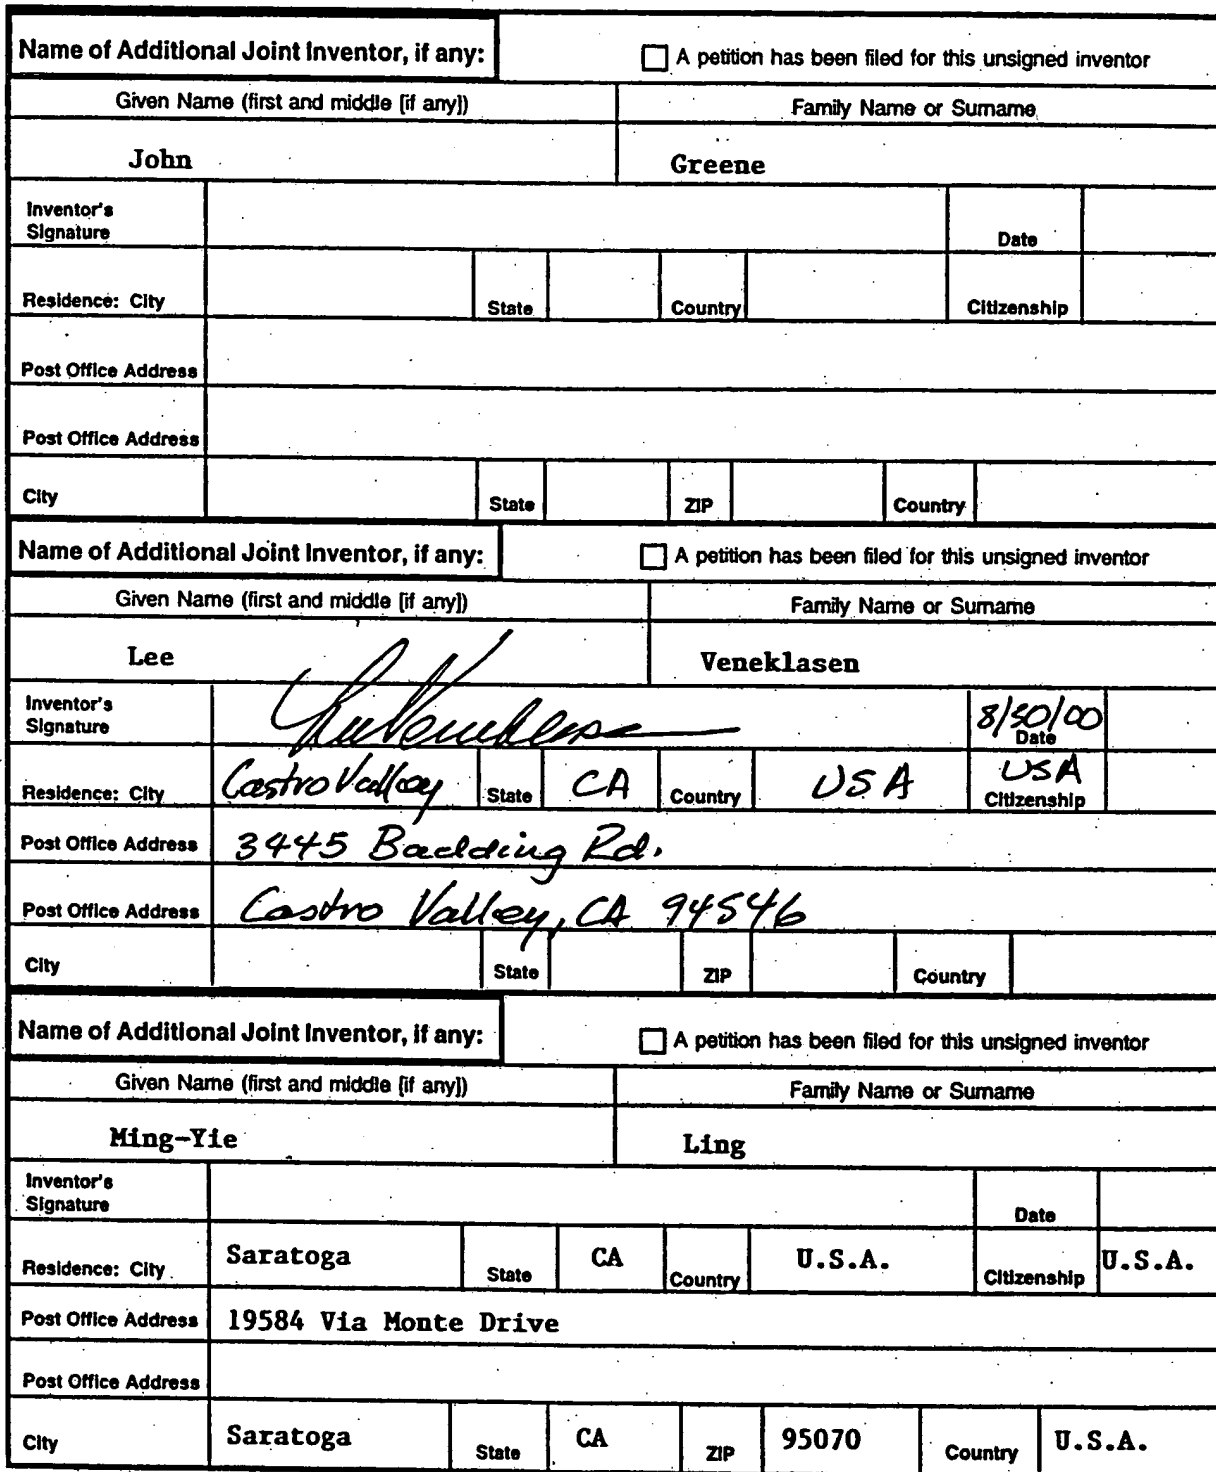 Name of Additional Joint Inventor, if any: ☐ A petition has been filed for this unsigned inventor
Given Name (first and middle [if any]) Family Name or Surname
John Greene
Inventor's
Signature Date
Residence: City State Country Citizenship
Post Office Address
Post Office Address
City State ZIP Country
Name of Additional Joint Inventor, if any: ☐ A petition has been filed for this unsigned inventor
Given Name (first and middle [if any]) Family Name or Surname
Lee Veneklasen
Inventor's
Signature Lee Veneklasen 8/30/00 Date
Residence: City Castro Valley State CA Country USA USA Citizenship
Post Office Address 3445 Badding Rd.
Post Office Address Castro Valley, CA 94546
City State ZIP Country
Name of Additional Joint Inventor, if any: ☐ A petition has been filed for this unsigned inventor
Given Name (first and middle [if any]) Family Name or Surname
Ming-Yie Ling
Inventor's
Signature Date
Residence: City Saratoga State CA Country U.S.A. Citizenship U.S.A.
Post Office Address 19584 Via Monte Drive
Post Office Address
City Saratoga State CA ZIP 95070 Country U.S.A.